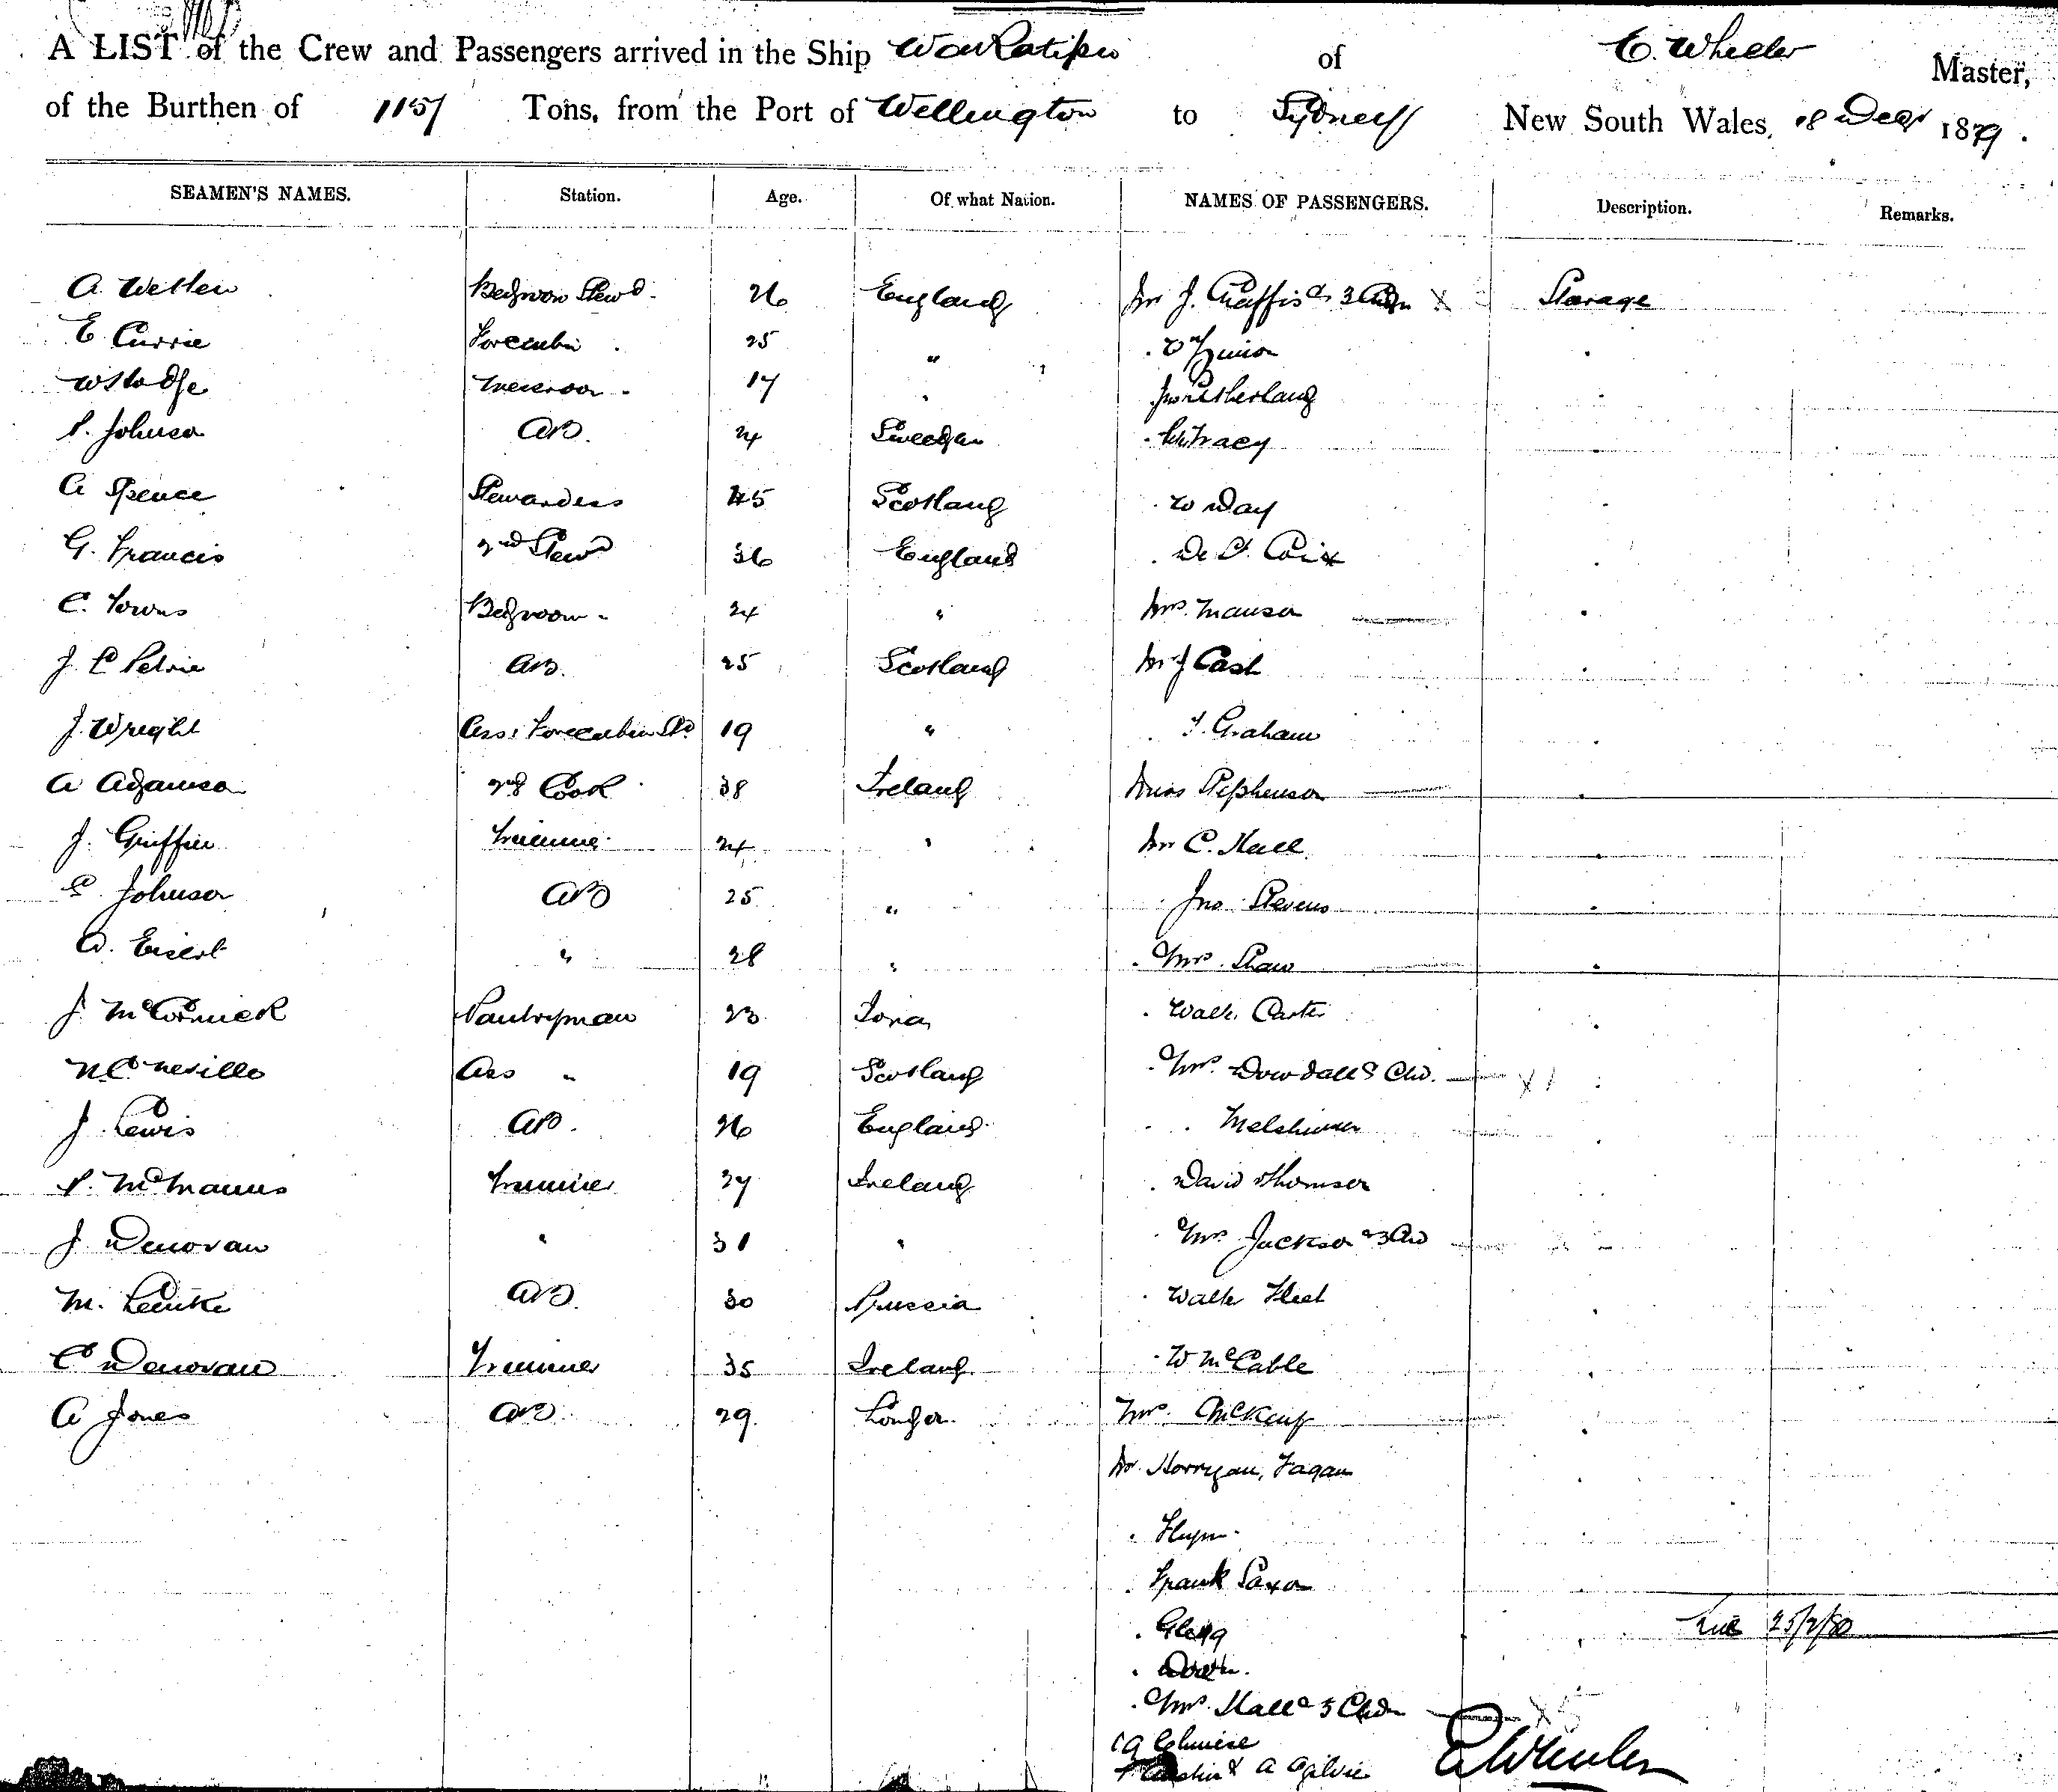 A LIST of the Crew and Passengers arrived in the Ship Wakatipu of C. Wheeler Master,
of the Burthen of 1157 Tons, from the Port of Wellington to Sydney New South Wales, 18 Decr 1879.
SEAMEN'S NAMES. Station. Age. Of what Nation. NAMES OF PASSENGERS. Description. Remarks.
A. Bedroom Stewd. 26 England Mr J. & 3 Chdn X Steerage
E Currie Forecabin 25 " "
W Hodge Messroom 17 " "
P. Johnson AB. 24 Sweeden " Tracy "
A Spence Stewardess 45 Scotland " W Day "
G. Francis 2nd Stewd 36 England " "
C. Towns Bedroom " 24 " Mrs. Manson "
J. C Petrie AB. 25 Scotland Mr J Cash "
J. Wright Ass: Forecabin Std 19 " " T. Graham "
A Adamson 2nd Cook 38 Ireland Miss Stephenson "
J. Griffin Trimmer 24 " Mr C. Hall "
C Johnson AB 25 " " Jno Stevens "
A. " 28 " " Mrs. Shaw "
J McCormick Pantryman 23 Iona " Walt. Carter "
N.C. Neville Ass " 19 Scotland " Mrs. Dowdall & Chd. X 1 "
J. Lewis AB. 26 England " " "
P. McManus Trimmer 27 Ireland " David Thomson "
J Donovan " 31 " " Mrs Jackson & 3 Chd "
M. AB. 30 Prussia " Walter Fleet "
C Donovan Trimmer 35 Ireland " W McCable "
A Jones AB. 29. London Mrs. "
Mr. Horrigan, Fagan
" "
" Frank Saxon "
" "
" "
" Mrs. Hall & 5 Chdn X 5
19 Chinese
& A Ogilvie
25/2/80
C Wheeler